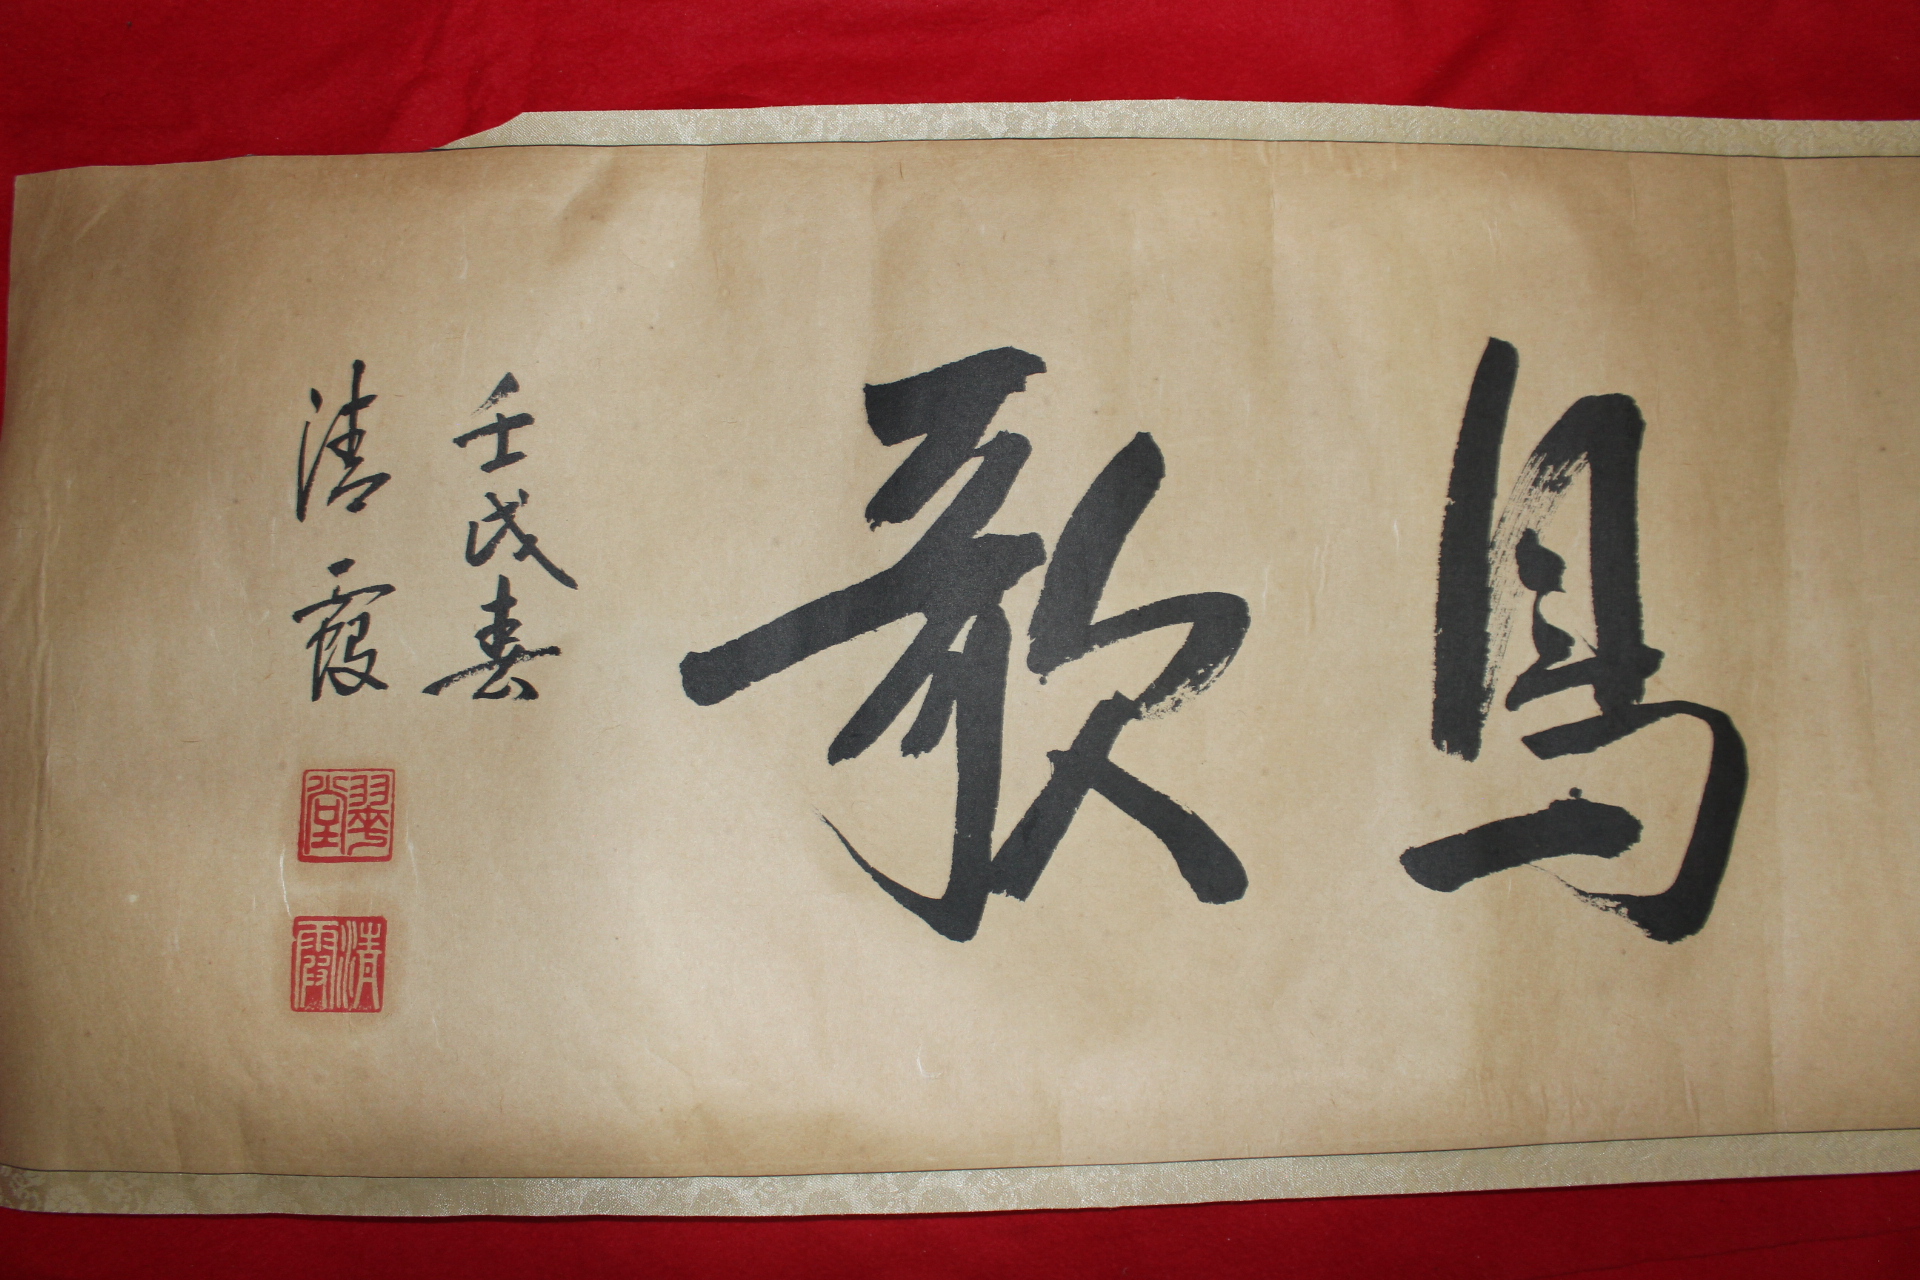 鳥歌
壬戌春
清霞
清霞